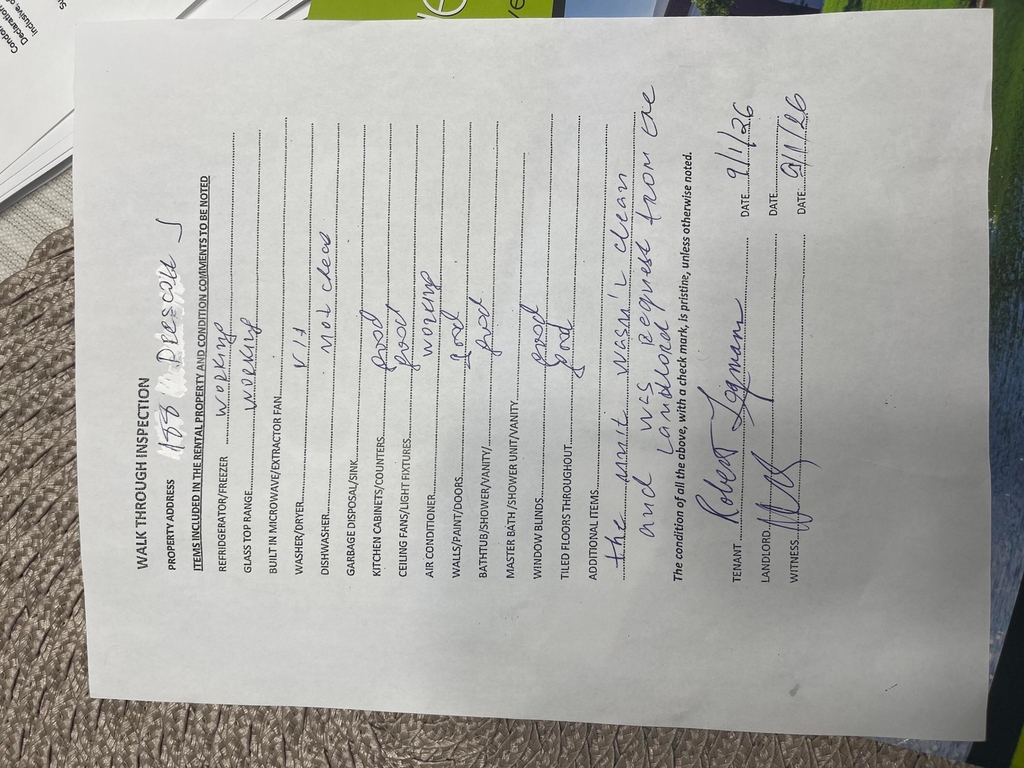 WALK THROUGH INSPECTION
PROPERTY ADDRESS 1188 DRISCOLL
ITEMS INCLUDED IN THE RENTAL PROPERTY AND CONDITION COMMENTS TO BE NOTED
REFRIDGERATOR/FREEZER working
GLASS TOP RANGE working
BUILT IN MICROWAVE/EXTRACTOR FAN
WASHER/DRYER
DISHWASHER not clean
GARBAGE DISPOSAL/SINK
KITCHEN CABINETS/COUNTERS good
CEILING FANS/LIGHT FIXTURES good
AIR CONDITIONER working
WALLS/PAINT/DOORS good
BATHTUB/SHOWER/VANITY/ good
MASTER BATH /SHOWER UNIT/VANITY
WINDOW BLINDS good
TILED FLOORS THROUGHOUT good
ADDITIONAL ITEMS
the unit wasn't clean
and was request from the
landlord
The condition of all the above, with a check mark, is pristine, unless otherwise noted.
TENANT Robert DATE 9/1/26
LANDLORD DATE
WITNESS DATE: 9/1/26